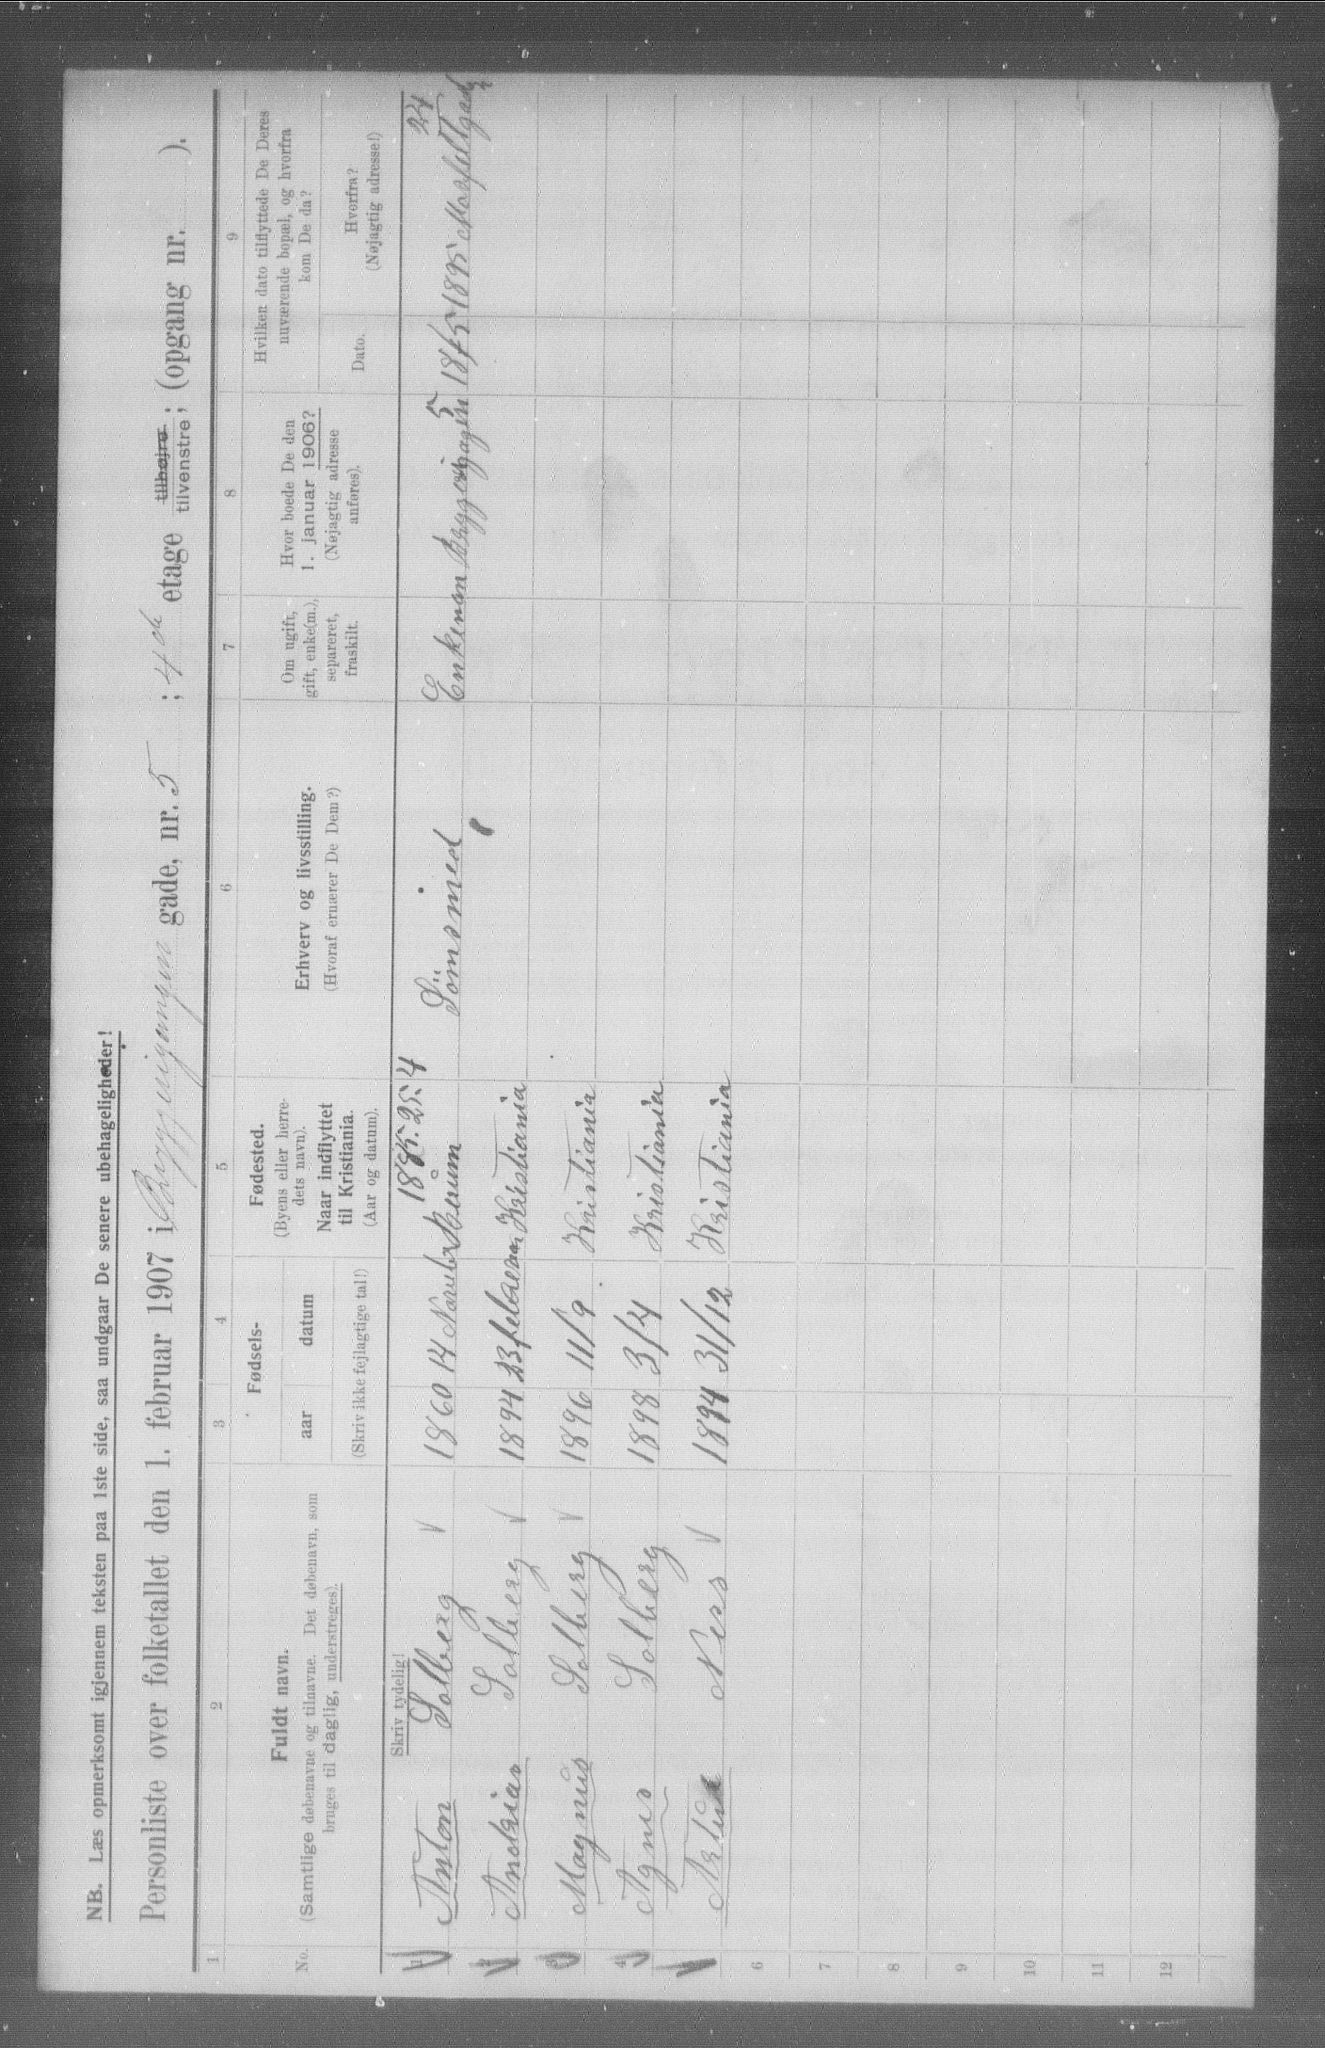 NB. Læs opmerksomt igjennem teksten paa 1ste side, saa undgaar De senere ubehageligheder!
Personliste over folketallet den 1. februar 1907 i Byggnigangen gade, nr. 5 ; 4de etage tilhøjre tilvenstre; (opgang nr. ).
1 2 3 4 5 6 7 8 9
No.
Fuldt navn.
(Samtlige døbenavne og tilnavne. Det døbenavn, som
bruges til daglig, understreges).
Fødsels-
aar datum
(Skriv ikke fejlagtige tal!)
Fødested.
(Byens eller herre-
dets navn).
Naar indflyttet
til Kristiania.
(Aar og datum).
Erhverv og livsstilling.
(Hvoraf ernærer De Dem?)
Om ugift,
gift, enke(m.),
separeret,
fraskilt.
Hvor boede De den
1. januar 1906?
(Nøjagtig adresse
anføres).
Hvilken dato tilflyttede De Deres
nuværende bopæl, og hvorfra
kom De da?
Dato.
Hvorfra?
(Nøjagtig adresse!)
Skriv tydelig!
1885. 25. 4 5 24
1 Anton Solberg 1860 14 Bærum Sömsmed Enkeman 18/5 1895
2 Andreas Solberg 1894 Kristiania
3 Magnus Solberg 1896 11/9 Kristiania
4 Agnes Solberg 1898 3/4 Kristiania
5 Ness 1894 31/12 Kristiania
6
7
8
9
10
11
12